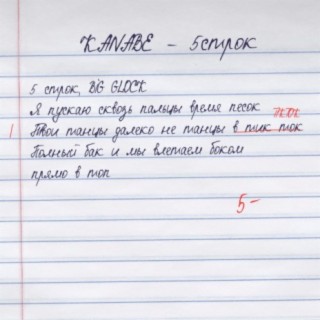 KANABE - 5 строк
5 строк, BIG GLOCK
Я пускаю сквозь пальцы время песок
Твои танцы далеко не танцы в тик ток
Полный бак и мы влетаем боком
прямо в топ
5-